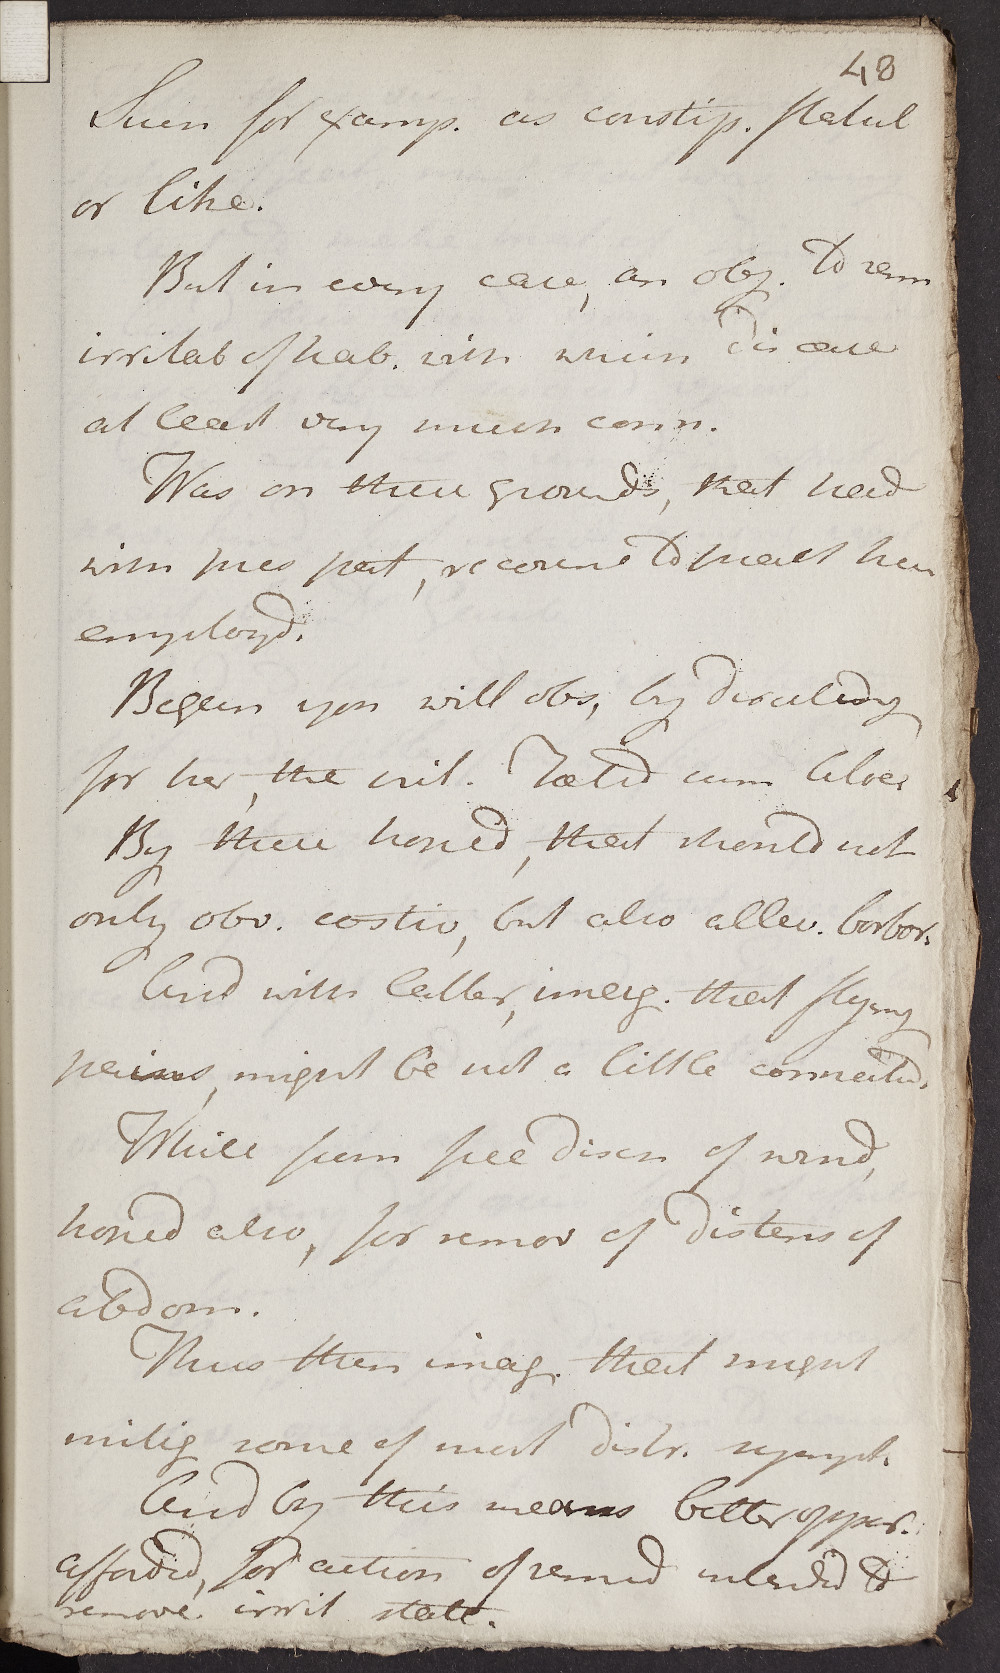 48
Such for examp. as constip. flatul
or like.
But in every case, an obj. to rem
irritab of hab. with which dis ease
at least very much conn.
Was on these grounds, that had
with pres pat, recourse to pract here
employd.
Began you will obs, by directing
for her, the pil. Fœtid cum Aloe
By these hoped, that should not
only obv. costiv, but also allev. borbor.
And with latter, imag. that flying
pains, might be not a little connected.
While from free disch of wind,
hoped also, for remov of distens of
abdom.
Thus then imag. that might
mitig some of most distr. sympt.
And by this means better oppor.
afforded, for action of remed intended to
remove irrit state.